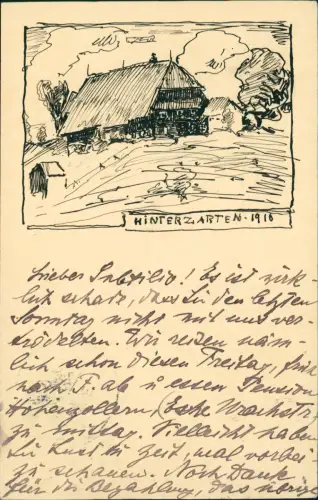 HINTERZARTEN · 1918
Lieber! Es ist wirk-
lich schade, dass Du den letzten
Sonntag nicht mit uns ver-
Wir reisen näm-
lich schon diesen Freitag, früh
nach F. ab u essen Pension
Hohenzollern, (Ecke
zu mittag. Vielleicht haben
Lust u Zeit, mal vorbei
zu schauen. Noch Dank
für die Bezahlung, das